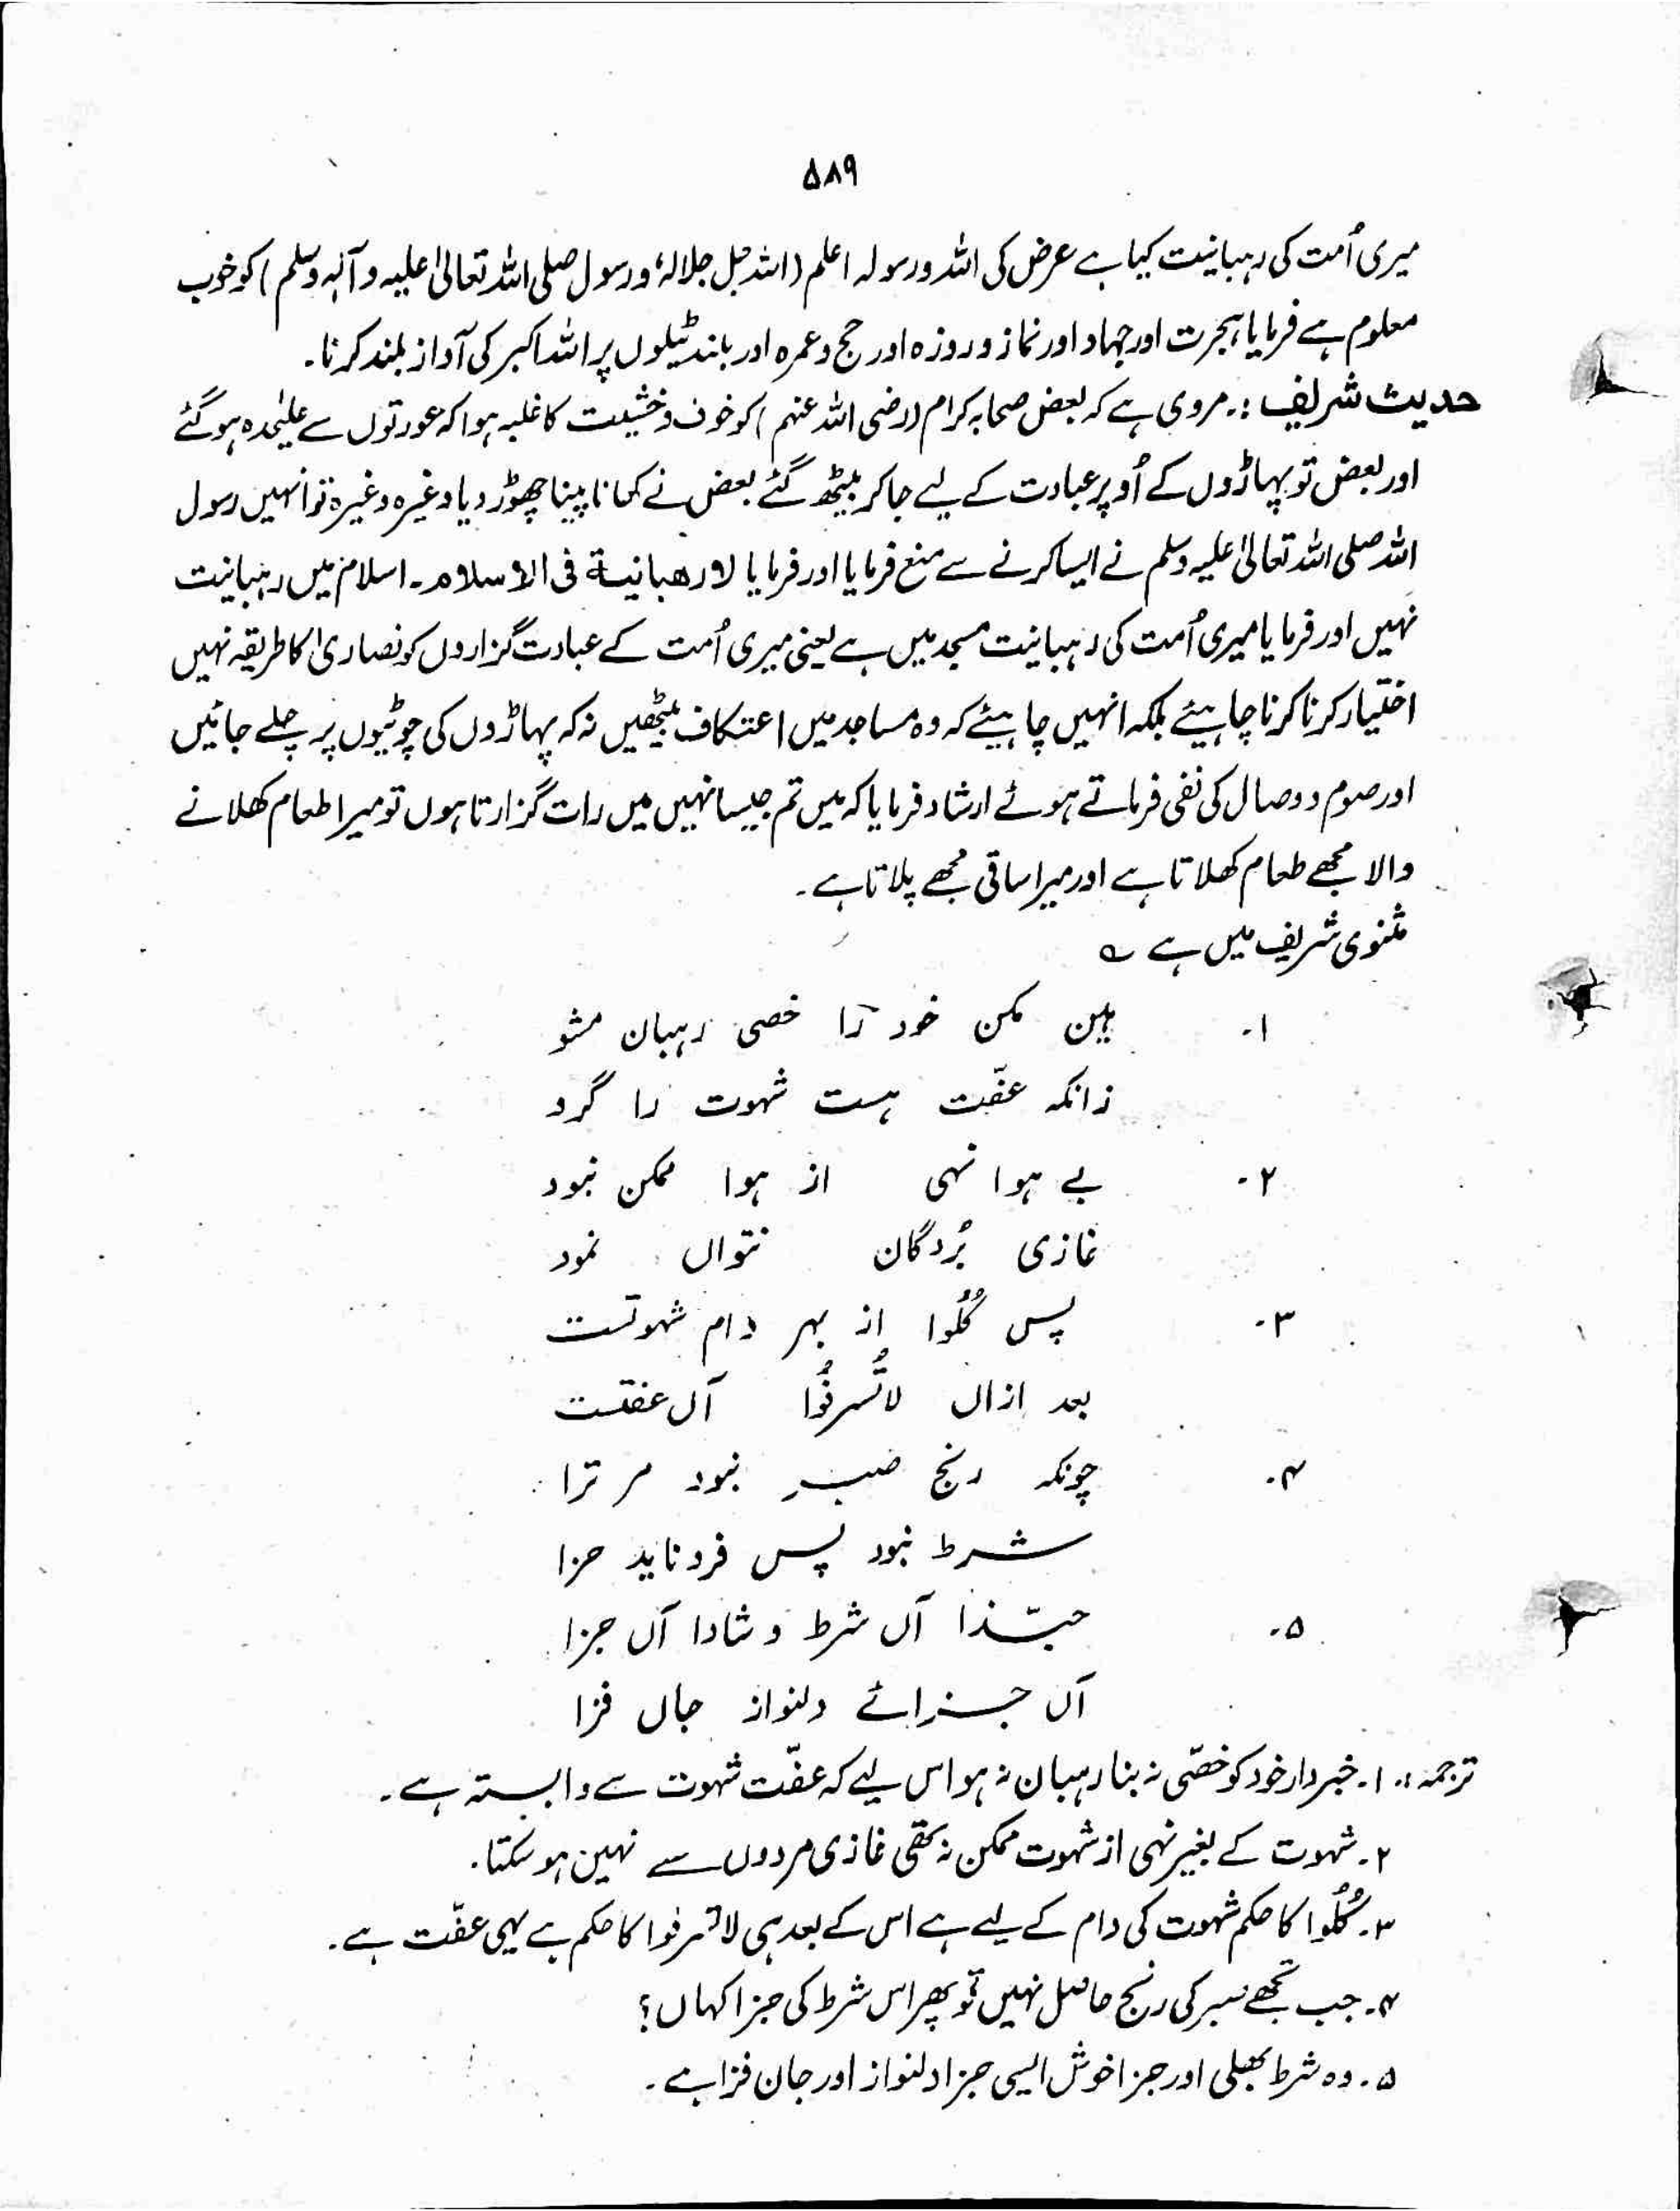 ۵۸۹
میری اُمت کی رہبانیت کیا ہے عرض کی اللہ ورسولہ اعلم (اللہ جل جلالہٗ ورسول صلی اللہ تعالیٰ علیہ وآلہٖ وسلم) کو خوب
معلوم ہے فرمایا ہجرت اور جہاد اور نماز و روزہ اور حج وعمرہ اور بلند ٹیلوں پر اللہ اکبر کی آواز بلند کرنا۔
حدیث شریف :۔ مروی ہے کہ بعض صحابہ کرام (رضی اللہ عنہم) کو خوف وخشیت کا غلبہ ہوا کہ عورتوں سے علیٰحدہ ہوگئے
اور بعض تو پہاڑوں کے اُوپر عبادت کے لیے جاکر بیٹھ گئے بعض نے کھانا پینا چھوڑ دیا وغیرہ وغیرہ تو انہیں رسول
اللہ صلی اللہ تعالیٰ علیہ وسلم نے ایسا کرنے سے منع فرمایا اور فرمایا لا رھبانیۃ فی الاسلام۔ اسلام میں رہبانیت
نہیں اور فرمایا میری اُمت کی رہبانیت مسجد میں ہے یعنی میری اُمت کے عبادت گزاروں کو نصاریٰ کا طریقہ نہیں
اختیار کرنا کرنا چاہیئے بلکہ انہیں چاہیئے کہ وہ مساجد میں اعتکاف بیٹھیں نہ کہ پہاڑوں کی چوٹیوں پر چلے جائیں
اور صوم و وصال کی نفی فرماتے ہوئے ارشاد فرمایا کہ میں تم جیسا نہیں میں رات گزارتا ہوں تو میرا طعام کھلانے
والا مجھے طعام کھلاتا ہے اور میرا ساقی مجھے پلاتا ہے۔
مثنوی شریف میں ہے ؎
۱۔ ہین مکن خود را خصی رہبان مشو
زانکہ عفّت ہست شہوت را گرد
۲۔ بے ہوا نہی از ہوا ممکن نبود
غازی بُردگان نتواں نمود
۳۔ پس کُلُوا از بہر دام شہوتست
بعد ازاں لاتُسرفُوا آں عفتست
۴۔ چونکہ رنج صبر نبود مر ترا
شرط نبود پس فرو ناید حزا
۵۔ حبّذا آں شرط و شادا آں جزا
آں جزائے دلنواز جاں فزا
ترجمہ :۔ ۱۔ خبردار خود کو خصّی نہ بنا رہبان نہ ہو اس لیے کہ عفّت شہوت سے وابستہ ہے۔
۲۔ شہوت کے بغیر نہی از شہوت ممکن نہ تھی غازی مردوں سے نہیں ہوسکتا۔
۳۔ کُلُوا کا حکم شہوت کی دام کے لیے ہے اس کے بعد ہی لاتسرفوا کا حکم ہے یہی عفّت ہے۔
۴۔ جب تجھے صبر کی رنج حاصل نہیں تو پھر اس شرط کی جزا کہاں؟
۵۔ وہ شرط بھلی اور جزا خوش ایسی جزا دلنواز اور جان فزا ہے۔